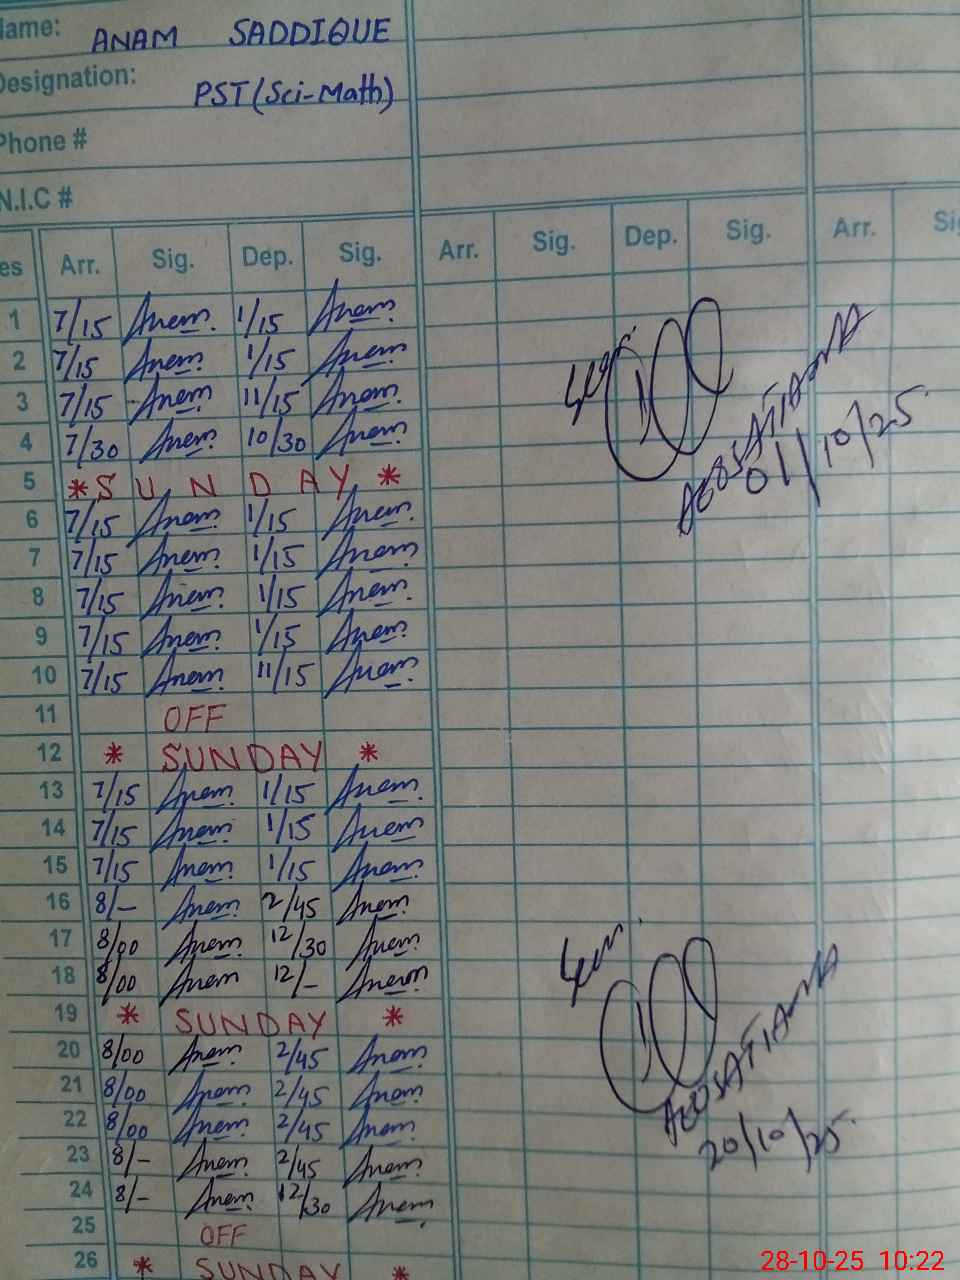 Name: ANAM SADDIQUE
Designation: PST (Sci-Math)
Phone #
N.I.C #
es Arr. Sig. Dep. Sig. Arr. Sig. Dep. Sig. Arr. Sig
1 7/15 Anam 1/15 Anam
2 7/15 Anam 1/15 Anam
3 7/15 Anam 11/15 Anam
4 7/30 Anam 10/30 Anam
5 * SUNDAY *
6 7/15 Anam 1/15 Anam
7 7/15 Anam 1/15 Anam
8 7/15 Anam 1/15 Anam
9 7/15 Anam 1/15 Anam
10 7/15 Anam 11/15 Anam
11 OFF
12 * SUNDAY *
13 7/15 Anam 1/15 Anam
14 7/15 Anam 1/15 Anam
15 7/15 Anam 1/15 Anam
16 8/- Anam 2/45 Anam
17 8/00 Anam 12/30 Anam
18 8/00 Anam 12/- Anam
19 * SUNDAY *
20 8/00 Anam 2/45 Anam
21 8/00 Anam 2/45 Anam
22 8/00 Anam 2/45 Anam
23 8/- Anam 2/45 Anam
24 8/- Anam 12/30 Anam
25 OFF
26 * SUNDAY *
01/10/25
20/10/25
28-10-25 10:22